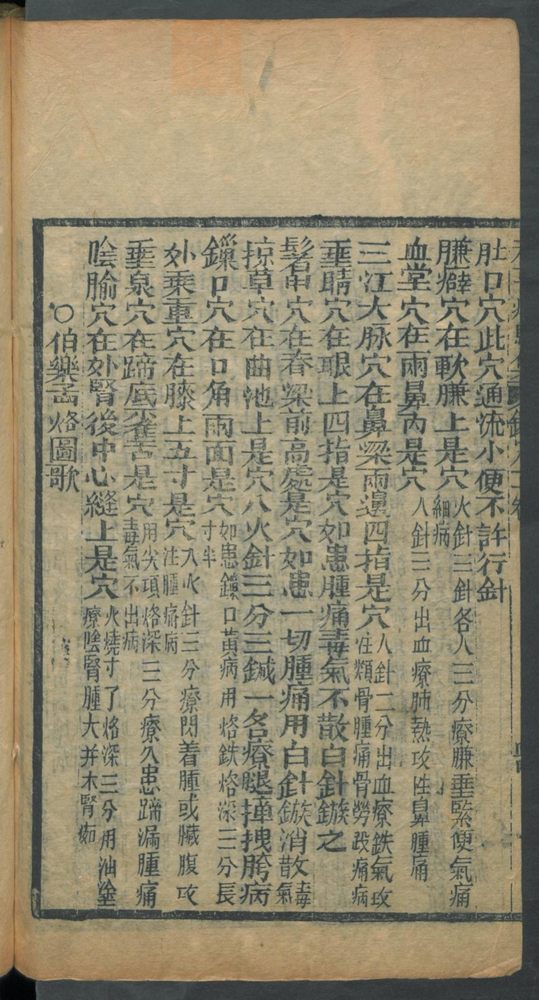 肚口穴此穴通流小便不許行針
膁癖穴在軟膁上是穴火針三針各入三分療膁垂緊便氣痛細病
血堂穴在兩鼻內是穴入針三分出血療肺熱攻注鼻腫痛
三江大脉穴在鼻梁兩邊四指是穴入針二分出血療鉄氣攻注頰骨腫痛骨勞跌痛病
垂睛穴在眼上四指是穴如患腫痛毒氣不散白針鏃之
鬐甲穴在脊梁前高處是穴如患一切腫痛用白針鏃消散毒氣
掠草穴在曲池上是穴八火針三分三鍼一名療腿撞拽胯病
鎖口穴在口角兩面是穴如患鎖口黄病用烙鉄烙深三分長寸半
外乘重穴在膝上五寸是穴入火針三分療閃着腫或臟腹攻注腫痛病
垂泉穴在蹄底是穴用尖項烙深二分療久患蹄漏腫痛毒氣不出病
陰腧穴在外腎後中心縫上是穴火燒寸了烙深三分用油塗療陰腎腫大并木腎如
○伯樂畫烙圖歌